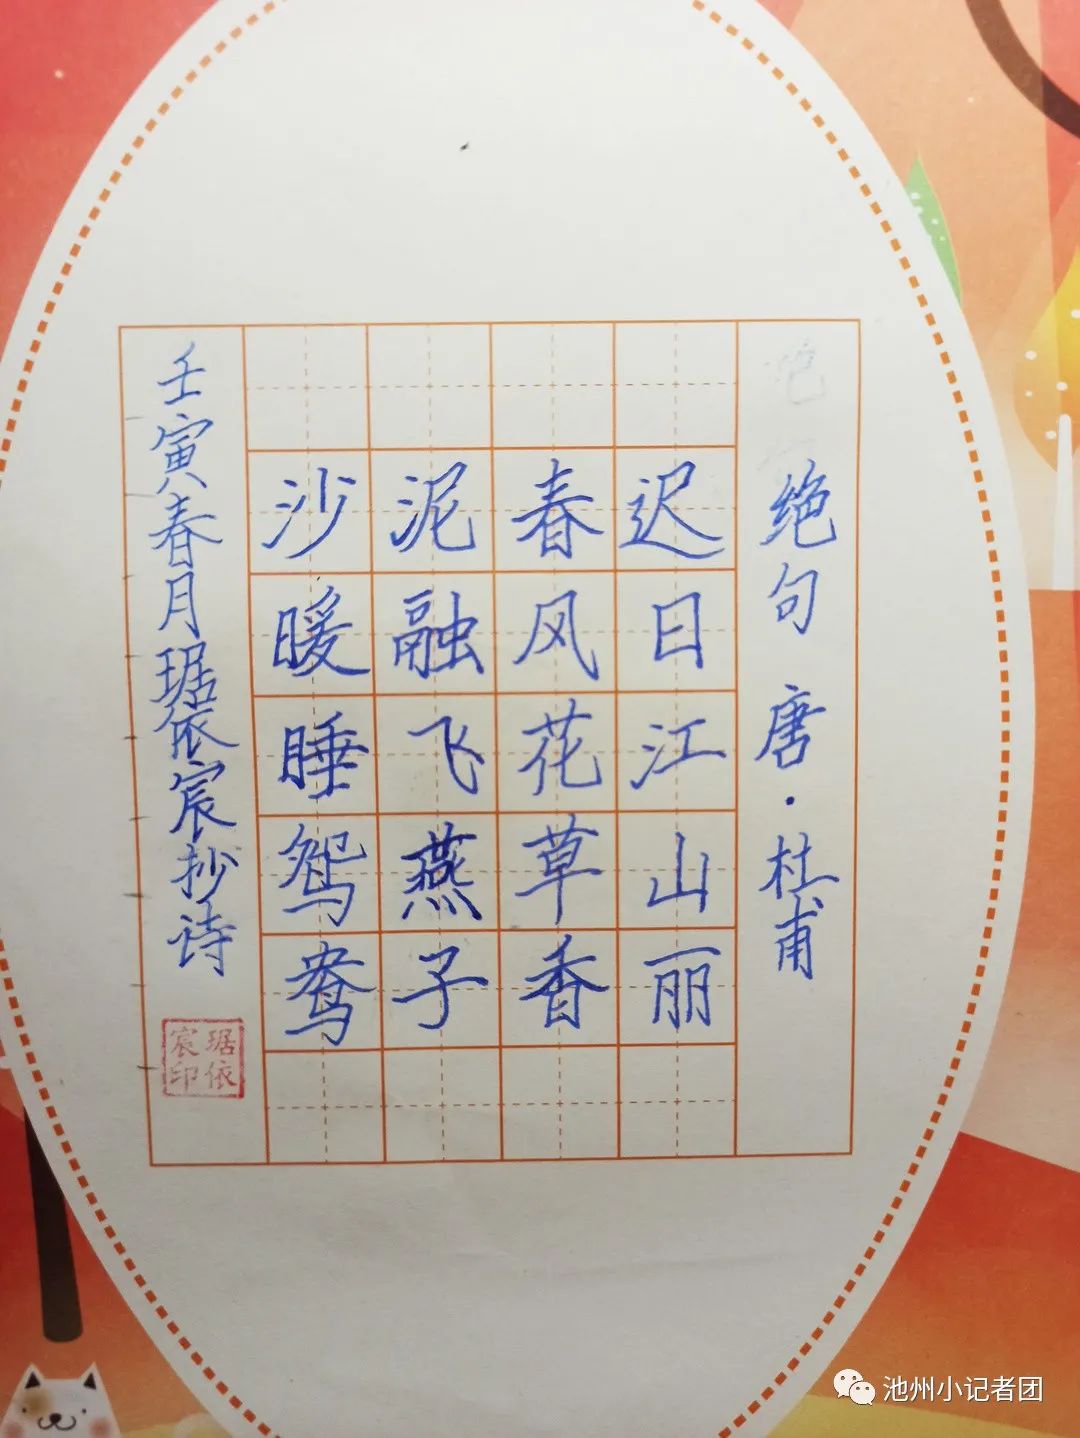 绝句 唐·杜甫
迟日江山丽
春风花草香
泥融飞燕子
沙暖睡鸳鸯
壬寅春月琚依宸抄诗
琚依宸印
池州小记者团